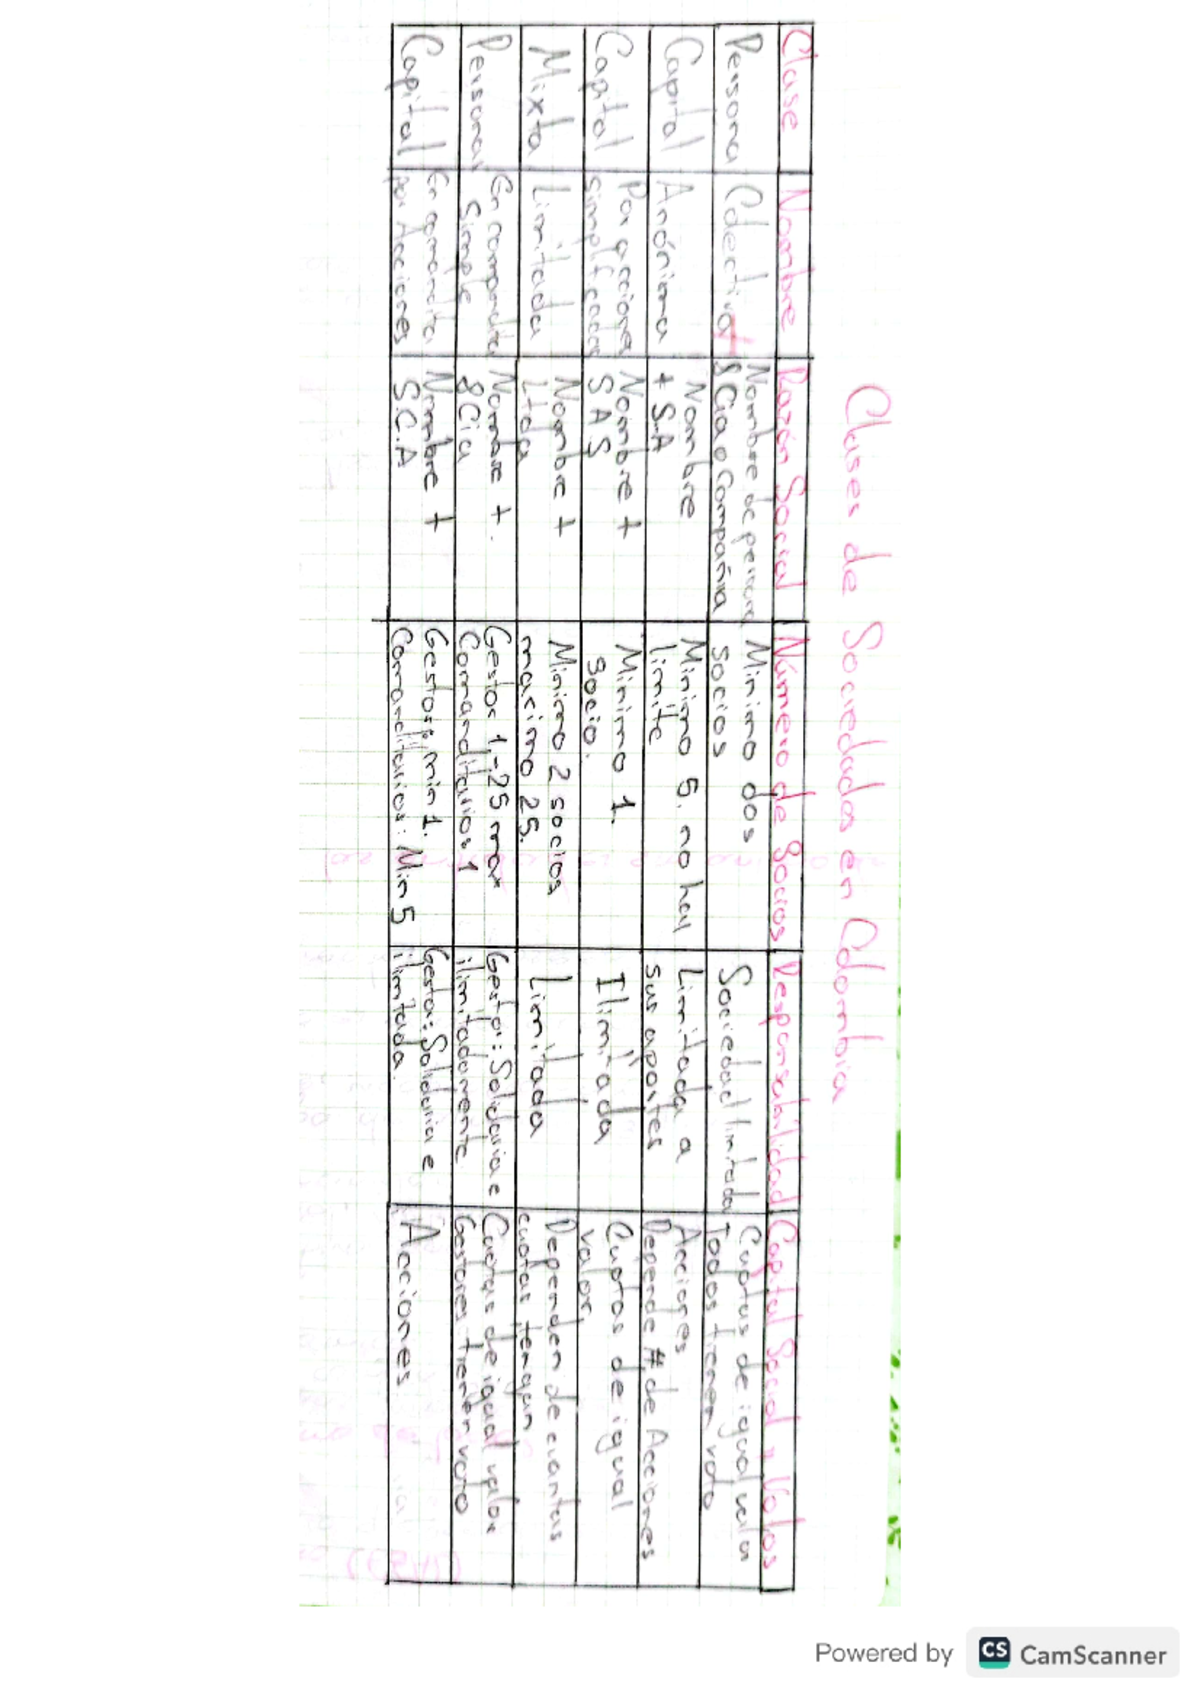 Clases de Sociedades en Colombia
Clase Nombre Razón Social Número de Socios Responsabilidad Capital Social y Votos
Persona Colectiva Nombre de persona Mínimo dos Sociedad limitada Cuotas de igual valor
& Cia o Compañia socios Todos tienen voto
Capital Anónima Nombre Minimo 5. no hay Limitada a Acciones
+ S.A limite sus aportes Depende # de Acciones
Capital Por acciones Nombre + Minimo 1. Ilimitada Cuotas de igual
simplificadas S A S Socio. valor
Mixta Limitada Nombre + Minimo 2 socios Limitada Dependen de cuantas
Ltda maximo 25. cuotas tengan
Personas En comandita Nombre +. Gestor 1,-25 max Gestor: Solidaria e Cuotas de igual valor
Simple & Cia Comanditarios 1 ilimitadamente Gestores tienen voto
Capital En comandita Nombre + Gestor: min 1. Gestor: Solidaria e Acciones
por Acciones S.C.A Comanditarios: Min 5 ilimitada.
Powered by CS CamScanner